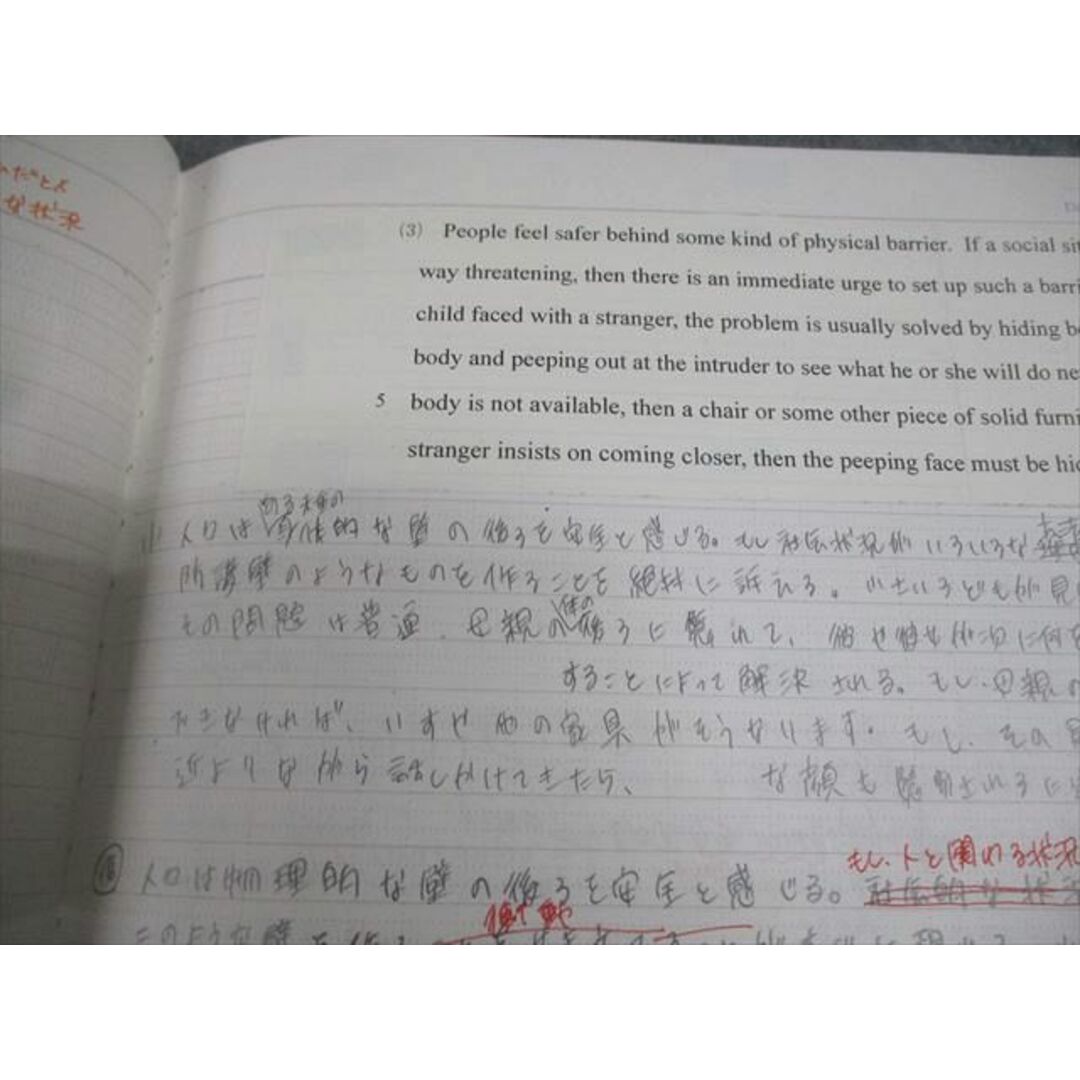 んだとよ
な状況
(3) People feel safer behind some kind of physical barrier. If a social sit
way threatening, then there is an immediate urge to set up such a barri
child faced with a stranger, the problem is usually solved by hiding be
body and peeping out at the intruder to see what he or she will do ne
5 body is not available, then a chair or some other piece of solid furni
stranger insists on coming closer, then the peeping face must be hid
ある種の
人々は 的な壁の後ろを安全と感じる。もし社会状況がいろいろな
のようなものを作ることを絶対に訴える。小さい子どもが見
その問題は普通、母親の体の後ろに隠れて、彼や彼女が次に何を
することによって解決される。もし、母親の
できなければ、いすや他の家具がそうなります。もし、その
近よりながら話しかけてきたら、 な顔も隠されるに
人々は物理的な壁の後ろを安全と感じる。
もし、人と関わる状況
社会的な状況
衝動
このような壁を作る